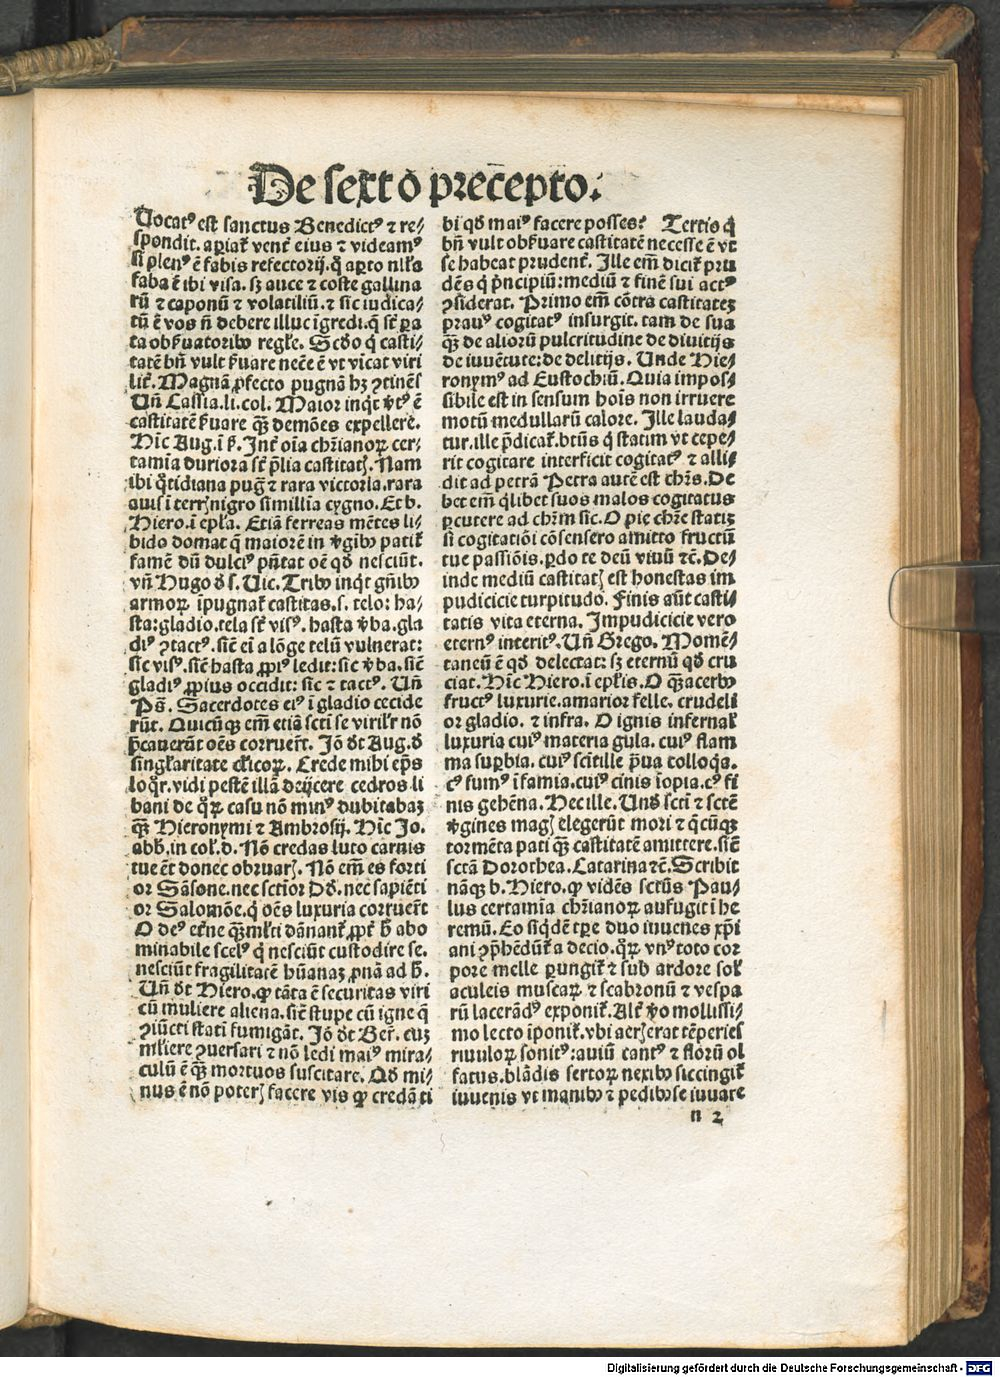 De sexto precepto.
Uocatꝰ est sanctus Benedictꝰ ⁊ re⸗
spondit. apiaꝶ ventꝰ eiꝰ ⁊ videamꝰ
si plenꝰ ē fabis refectorij. ꝙ apto nlła
faba ē ibi visa. sꝫ auce ⁊ coste gallina
rū ⁊ caponū ⁊ volatiliū. ⁊ sic iudica⸗
tū ē vos nō debere illuc īgredi. q̄
obẜuatoribꝰ regłe. Scd̓o q̄ casti⸗
tatē bn̄ vult ẜuare necē ē vt viuat viri
liṫ. Magnā ꝓfecto pugnā hꝫ ꝯtinēs
Uñ Cassia. li. col. Maior inq̇t ꝟtꝰ ē
castitatē ẜuare qꝫ demōes expellere.
Hīc Aug. Int̄ oīa chr̄ianoꝝ cer⸗
tamīa duriora sc̄ p̄lia castitatꝭ. Nam
ibi q̇tidiana pugᷓ ⁊ rara victoria. rara
auis ī terrꝭ nigro simillīa cygno. Et b.
Hiero. ī epła. Etiā ferreas mētes li⸗
bido domat q̄ maiorē in ꝟgibꝰ patiꝶ
famē dū dulciꝰ pūtat oē qd̓ nesciūt.
vñ Hugo d̓ s. Uic. Tribꝰ inq̇t gn̄ibꝰ
armoꝝ īpugnaꝶ castitas. s. telo: ha⸗
sta: gladio. tela sc̄ visꝰ. hasta ꝟba. gla
diꝰ ꝯtactꝰ. sic̄ ei a lōge telū vulnerat:
sic visꝰ. sic̄ hasta ꝓpiꝰ ledit: sic ꝟba. sic̄
gladiꝰ ꝓpius occidit: sic ⁊ tactꝰ. Uñ
Ps̄. Sacerdotes eiꝰ ī gladio cecide
rūt. Quicūqꝫ em̄ etiā scti se viriłr nō
p̄cauerūt oēs corruerūt. Jō dt̄ Aug. d̓
singłaritate cłicoꝝ. Crede mihi ep̄s
loq̇r. vidi pestē illā deijcere cedros li
bani de q̇ꝝ casu nō minꝰ dubitabaꝫ
qꝫ Hieronymi ⁊ Ambrosij. Hīc Jo.
abb̄. in coł. d. Nō credas luto carnis
tue et̄ donec obruarꝭ. Nō em̄ es forti
or Sāsone. nec sctior Dd̓. nec sapiēti
or Salomōe. q̇ oēs luxuria corruer̄t
O deꝰ et̄ne qꝫ młti dānanꝶ ꝓpt̄ ħ abo
minabile scelꝰ q̇ nesciūt custodire se.
nesciūt fragilitatē hūanaꝫ ꝓnā ad ħ.
Uñ dt̄ Hiero. ꝙ tāta ē securitas viri
cū muliere aliena. sic̄ stupe cū igne q̄
ꝯiūcti stati fumigāt. Jō dt̄ Ber̄. cuꝫ
młiere ꝯuersari ⁊ nō ledi maiꝰ mira⸗
culū ē qꝫ mortuos suscitare. Qd̓ mi⸗
nus ē nō poterꝭ facere vis ꝙ credā ti
bi qd̓ maiꝰ facere posses? Tertio q̇
bn̄ vult obẜuare castitatē necesse ē vt
se habeat prudenṫ. Ille em̄ diciꝶ pru
dēs q̇ p̄ncipiū: mediū ⁊ finē sui actꝰ
ꝯsiderat. Primo em̄ cōtra castitateꝫ
prauꝰ cogitatꝰ insurgit. tam de sua
qꝫ de aliorū pulcritudine de diuitijs
de iuuētute: de delitijs. Unde Hie⸗
ronymꝰ ad Eustochiū. Quia impos⸗
sibile est in sensum hoīs non irruere
motū medullarū calore. Ille lauda⸗
tur. ille p̄dicaꝶ. btūs q̇ statim vt cepe⸗
rit cogitare interficit cogitatꝰ ⁊ alli⸗
dit ad petrā Petra autē est chr̄s. De
bet em̄ q̇libet suos malos cogitatus
ꝑcutere ad chr̄m sic. O pie chr̄e statiꝫ
si cogitatiōi cōsensero amitto fructū
tue passiōis. ꝑdo te deū viuū ⁊c̄. De⸗
inde mediū castitatꝭ est honestas im
pudicicie turpitudo. Finis aūt casti⸗
tatis vita eterna. Impudicicie vero
eternꝰ interitꝰ. Uñ Grego. Momē⸗
taneū ē qd̓ delectat: sꝫ eternū qd̓ cru
ciat. Hīc Hiero. ī epłis. O qꝫ acerbꝰ
fructꝰ luxurie. amarior felle. crudeli
or gladio. ⁊ infra. O ignis infernał
luxuria cuiꝰ materia gula. cuiꝰ flam
ma suꝑbia. cuiꝰ scītille p̄ua colloq̇a.
cꝰ fumꝰ īfamia. cuiꝰ cinis īopia. cꝰ fi
nis gehēna. Hec ille. Und̓ scti ⁊ sctē
ꝟgines magꝭ elegerūt mori ⁊ q̄cūqꝫ
tormēta pati qꝫ castitatē amittere. sic̄
sctā Dorothea. Catarina ⁊c̄. Scribit
nāqꝫ b. Hiero. ꝙ vidēs sctūs Pau⸗
lus certamīa chr̄ianoꝝ aufugit ī he
remū. Eo siq̇dē tꝑe duo iuuenes xp̄i
ani ꝯp̄hēdūꝶ a decio. q̇ꝝ vnꝰ toto cor
pore melle ꝑungiꝶ ⁊ sub ardore soł
aculeis muscaꝝ ⁊ scabronū ⁊ vespa
rū lacerādꝰ exponiꝶ. Alt̄ ꝟo mollissi⸗
mo lecto īponiꝶ. vbi aerꝭ erat tēperies
riuuloꝝ sonitꝰ: auiū cantꝰ ⁊ florū ol
fatus. blādis sertoꝝ nexibꝰ siccingiꝶ
iuuenis vt manibꝰ ⁊ pedibꝰ se iuuare
n 2
Digitalisierung gefördert durch die Deutsche Forschungsgemeinschaft - DFG